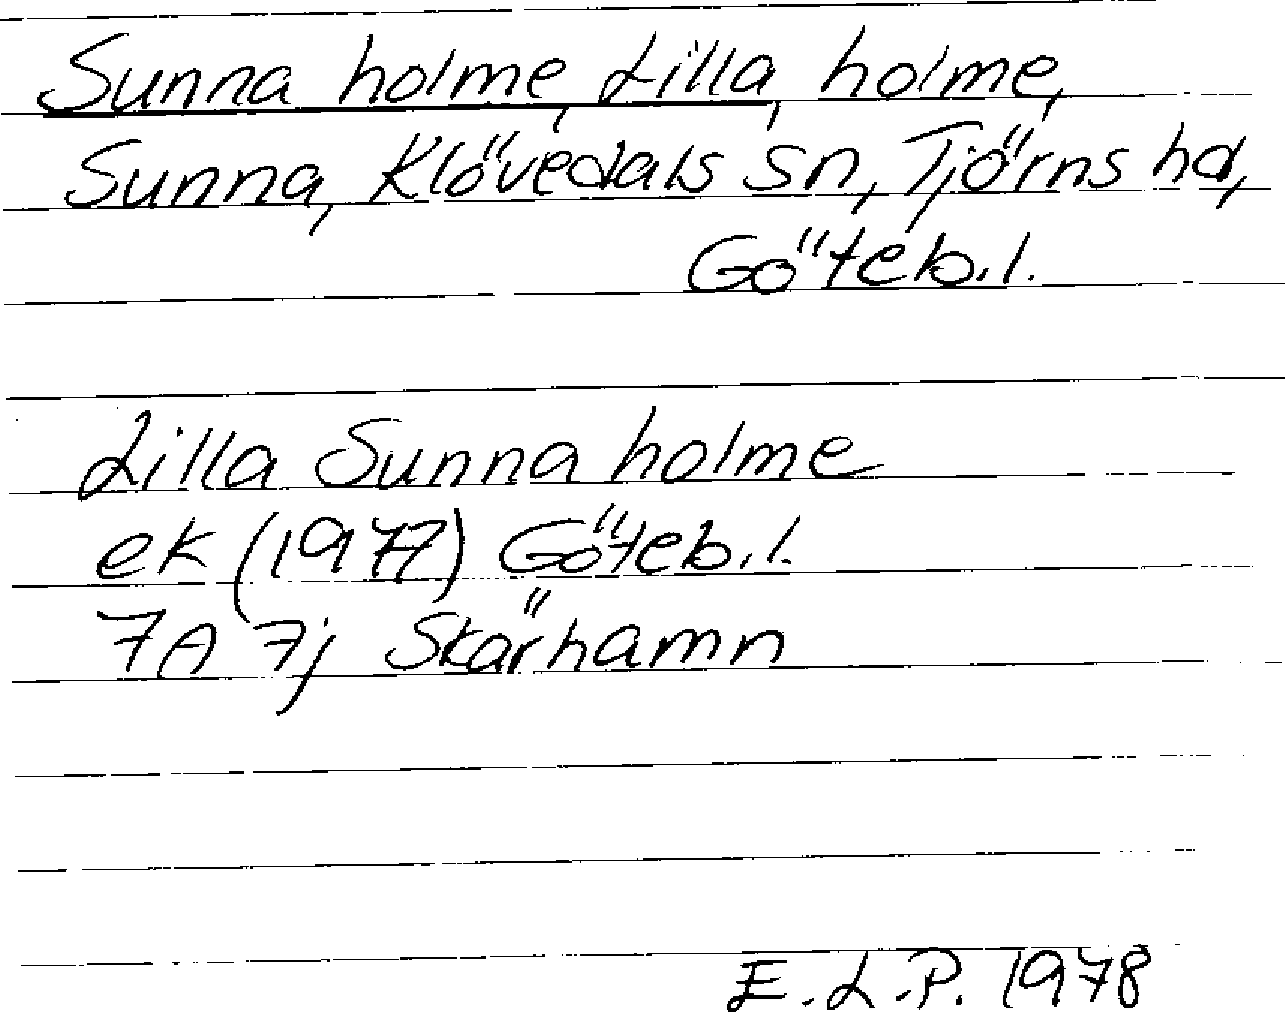 Sunna holme, Lilla, holme,
Sunna, Klövedals sn, Tjörns hd,
Göteb. l.
Lilla Sunna holme
ek (1977) Göteb. l.
7A 7j Skärhamn
E. L. P. 1978